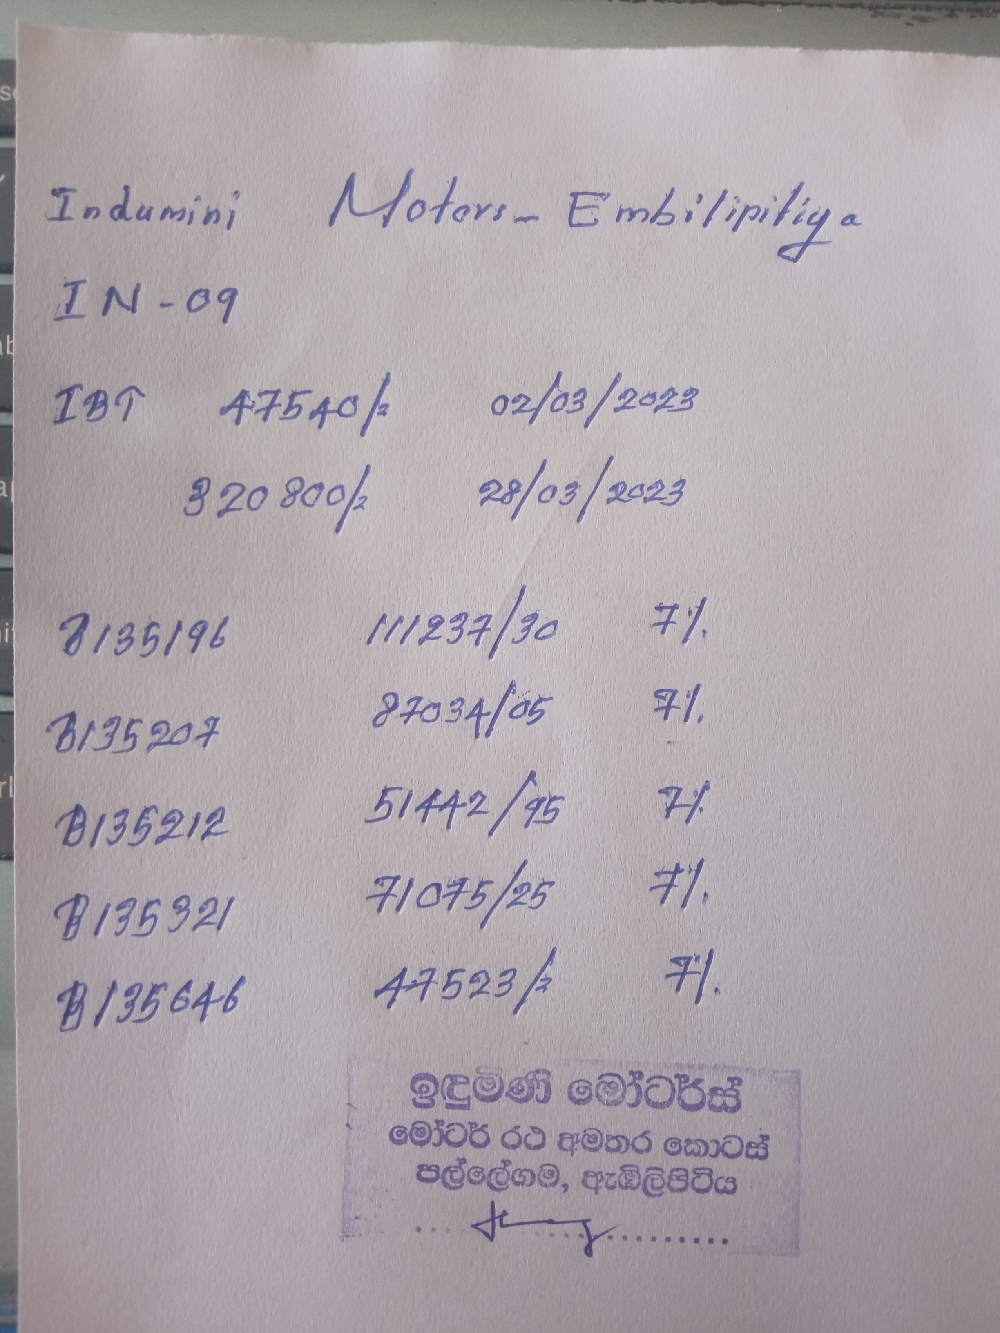 Indumini Motors - Embilipitiya
IN - 09
IBT 47540/= 02/03/2023
320800/= 28/03/2023
B135196 111237/30 7%.
B135207 87034/05 7%.
B135212 51442/95 7%.
B135321 71075/25 7%.
B135646 47523/= 7%.
ඉඳුමිණි මෝටර්ස්
මෝටර් රථ අමතර කොටස්
පල්ලේගම, ඇඹිලිපිටිය